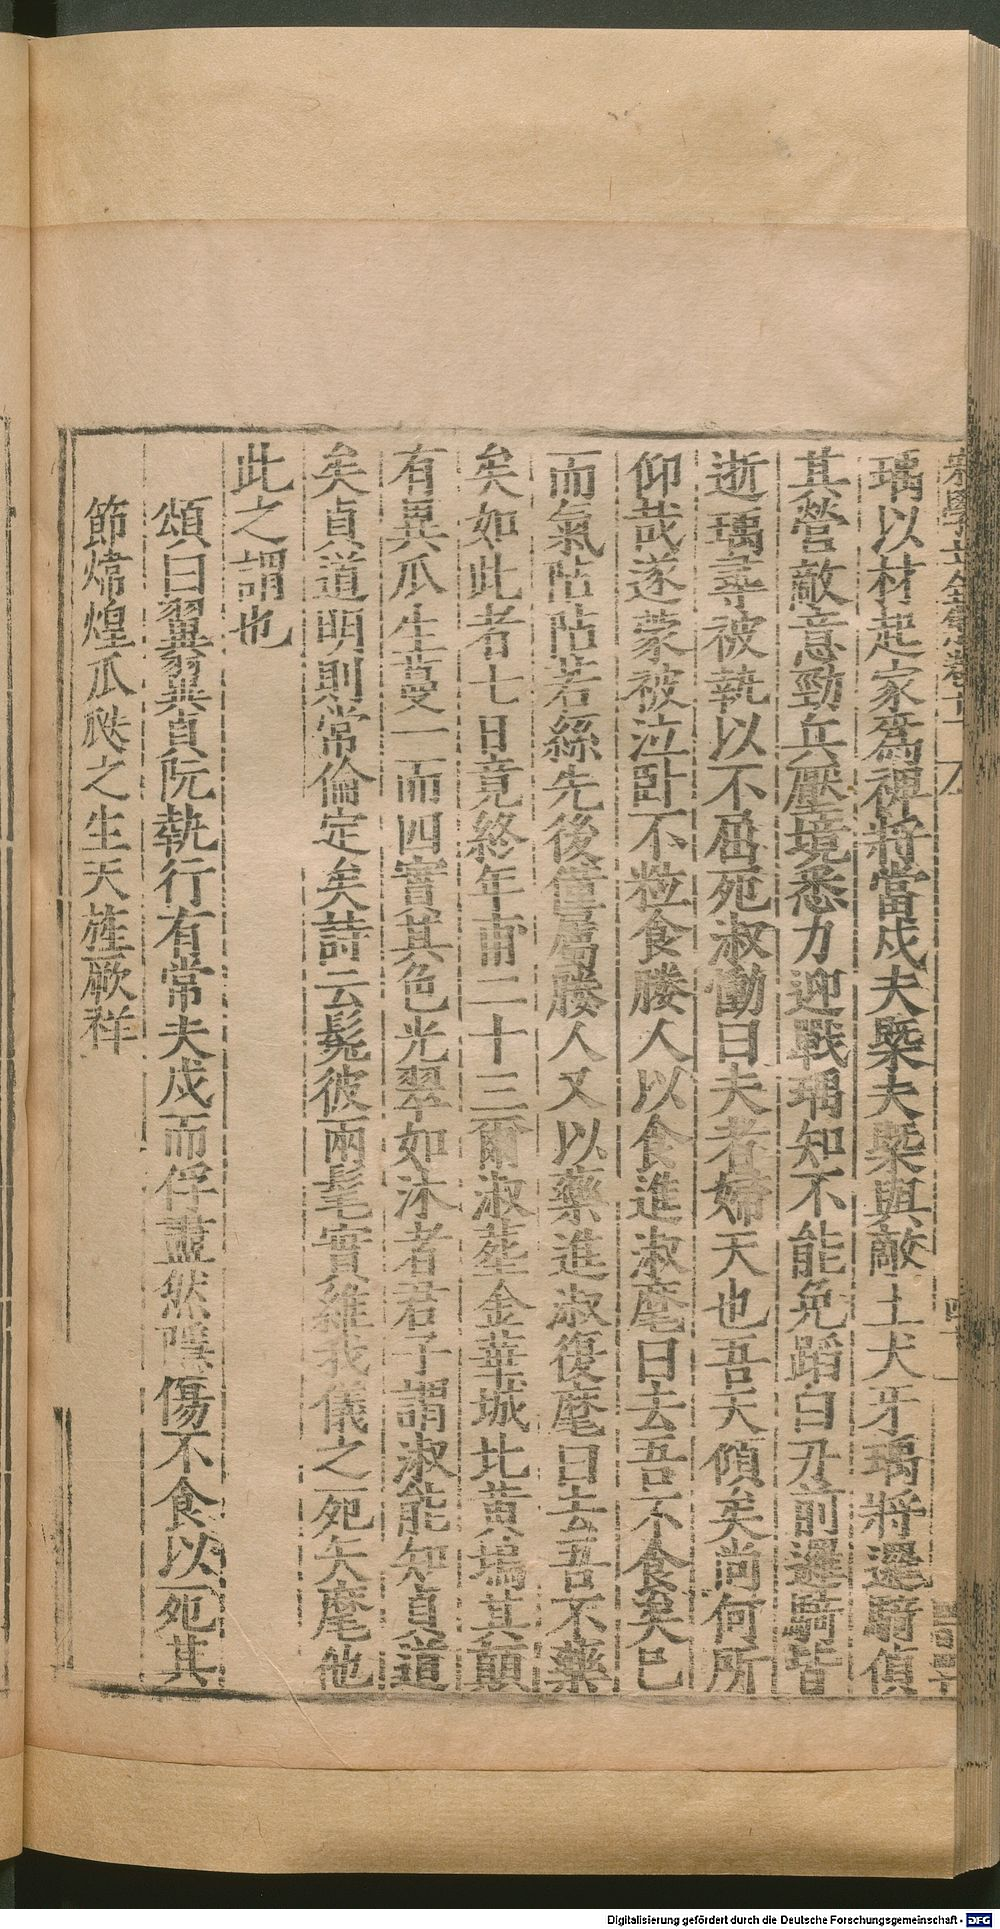 瑀以材起家爲裨將當戍夫槩夫槩與敵土犬牙瑀將邏騎偵
其營敵意勁兵壓境悉力迎戰瑀知不能免蹈白刃前邏騎皆
逝瑀尋被執以不屈死淑慟曰夫者婦天也吾天傾矣尚何所
仰哉遂蒙被泣卧不粒食媵人以食進淑麾曰去吾不食矣已
而氣阽阽若絲先後僮屬媵人又以藥進淑復麾曰去吾不藥
矣如此者七日竟終年甫二十三爾淑塟金華城北黄塢其顛
有異瓜生蔓一而四實其色光翠如沐者君子謂淑能知貞道
矣貞道明則常倫定矣詩云髧彼兩髦實維我儀之死矢麾他
此之謂也
頌曰翼翼貞阮執行有常夫戍而俘盡然隱傷不食以死其
節焞煌瓜瓞之生天旌厥祥
Digitalisierung gefördert durch die Deutsche Forschungsgemeinschaft - DFG